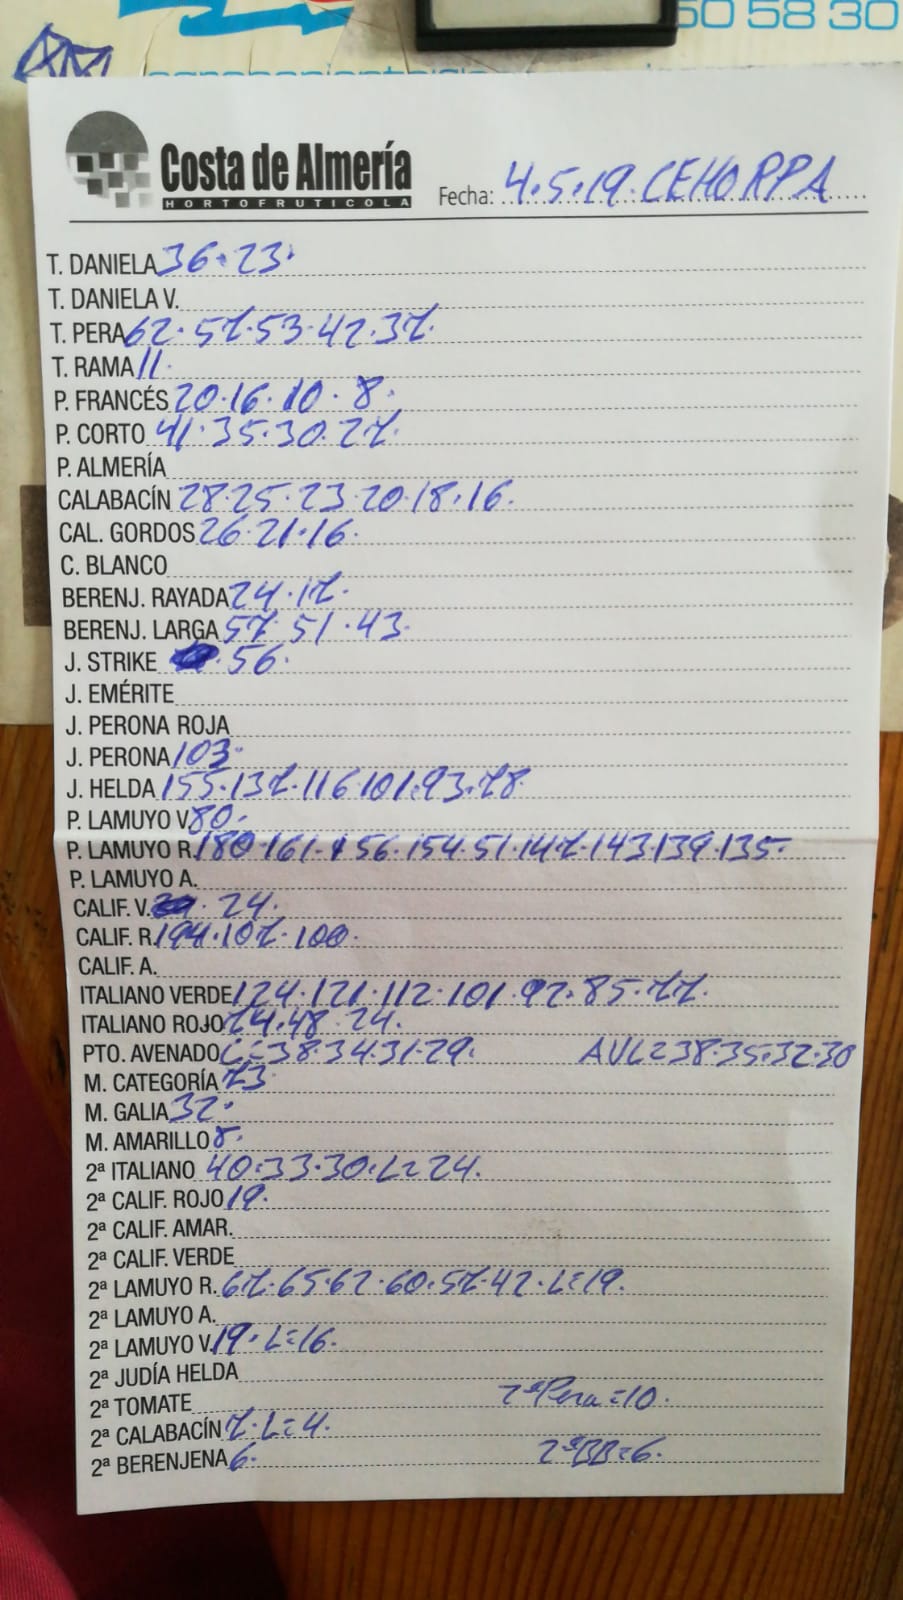 50 58 30
Costa de Almería
HORTOFRUTICOLA
Fecha: 4.5.19. CEHORPA
T. DANIELA 36.23.
T. DANIELA V.
T. PERA 62.57.53.42.37.
T. RAMA 11.
P. FRANCÉS 20.16.10.8.
P. CORTO 41.35.30.27.
P. ALMERÍA
CALABACÍN 28.25.23.20.18.16.
CAL. GORDOS 26.21.16.
C. BLANCO
BERENJ. RAYADA 24.17.
BERENJ. LARGA 57.51.43.
J. STRIKE 56.
J. EMÉRITE
J. PERONA ROJA
J. PERONA 103.
J. HELDA 155.137.116.101.93.78.
P. LAMUYO V. 80.
P. LAMUYO R. 180.161.156.154.51.147.143.139.135.
P. LAMUYO A.
CALIF. V. 24.
CALIF. R. 194.107.100.
CALIF. A.
ITALIANO VERDE 124.121.112.101.92.85.77.
ITALIANO ROJO 74.48.24.
PTO. AVENADO C=38.34.31.29. AVL=38.35.32.30
M. CATEGORÍA 73
M. GALIA 32.
M. AMARILLO 8.
2ª ITALIANO 40.33.30.L=24.
2ª CALIF. ROJO 19.
2ª CALIF. AMAR.
2ª CALIF. VERDE
2ª LAMUYO R. 67.65.62.60.57.42.L=19.
2ª LAMUYO A.
2ª LAMUYO V. 19.L=16.
2ª JUDÍA HELDA
2ª TOMATE 2ª Pera=10.
2ª CALABACÍN 7.L=4.
2ª BERENJENA 6. 2ª BB=6.